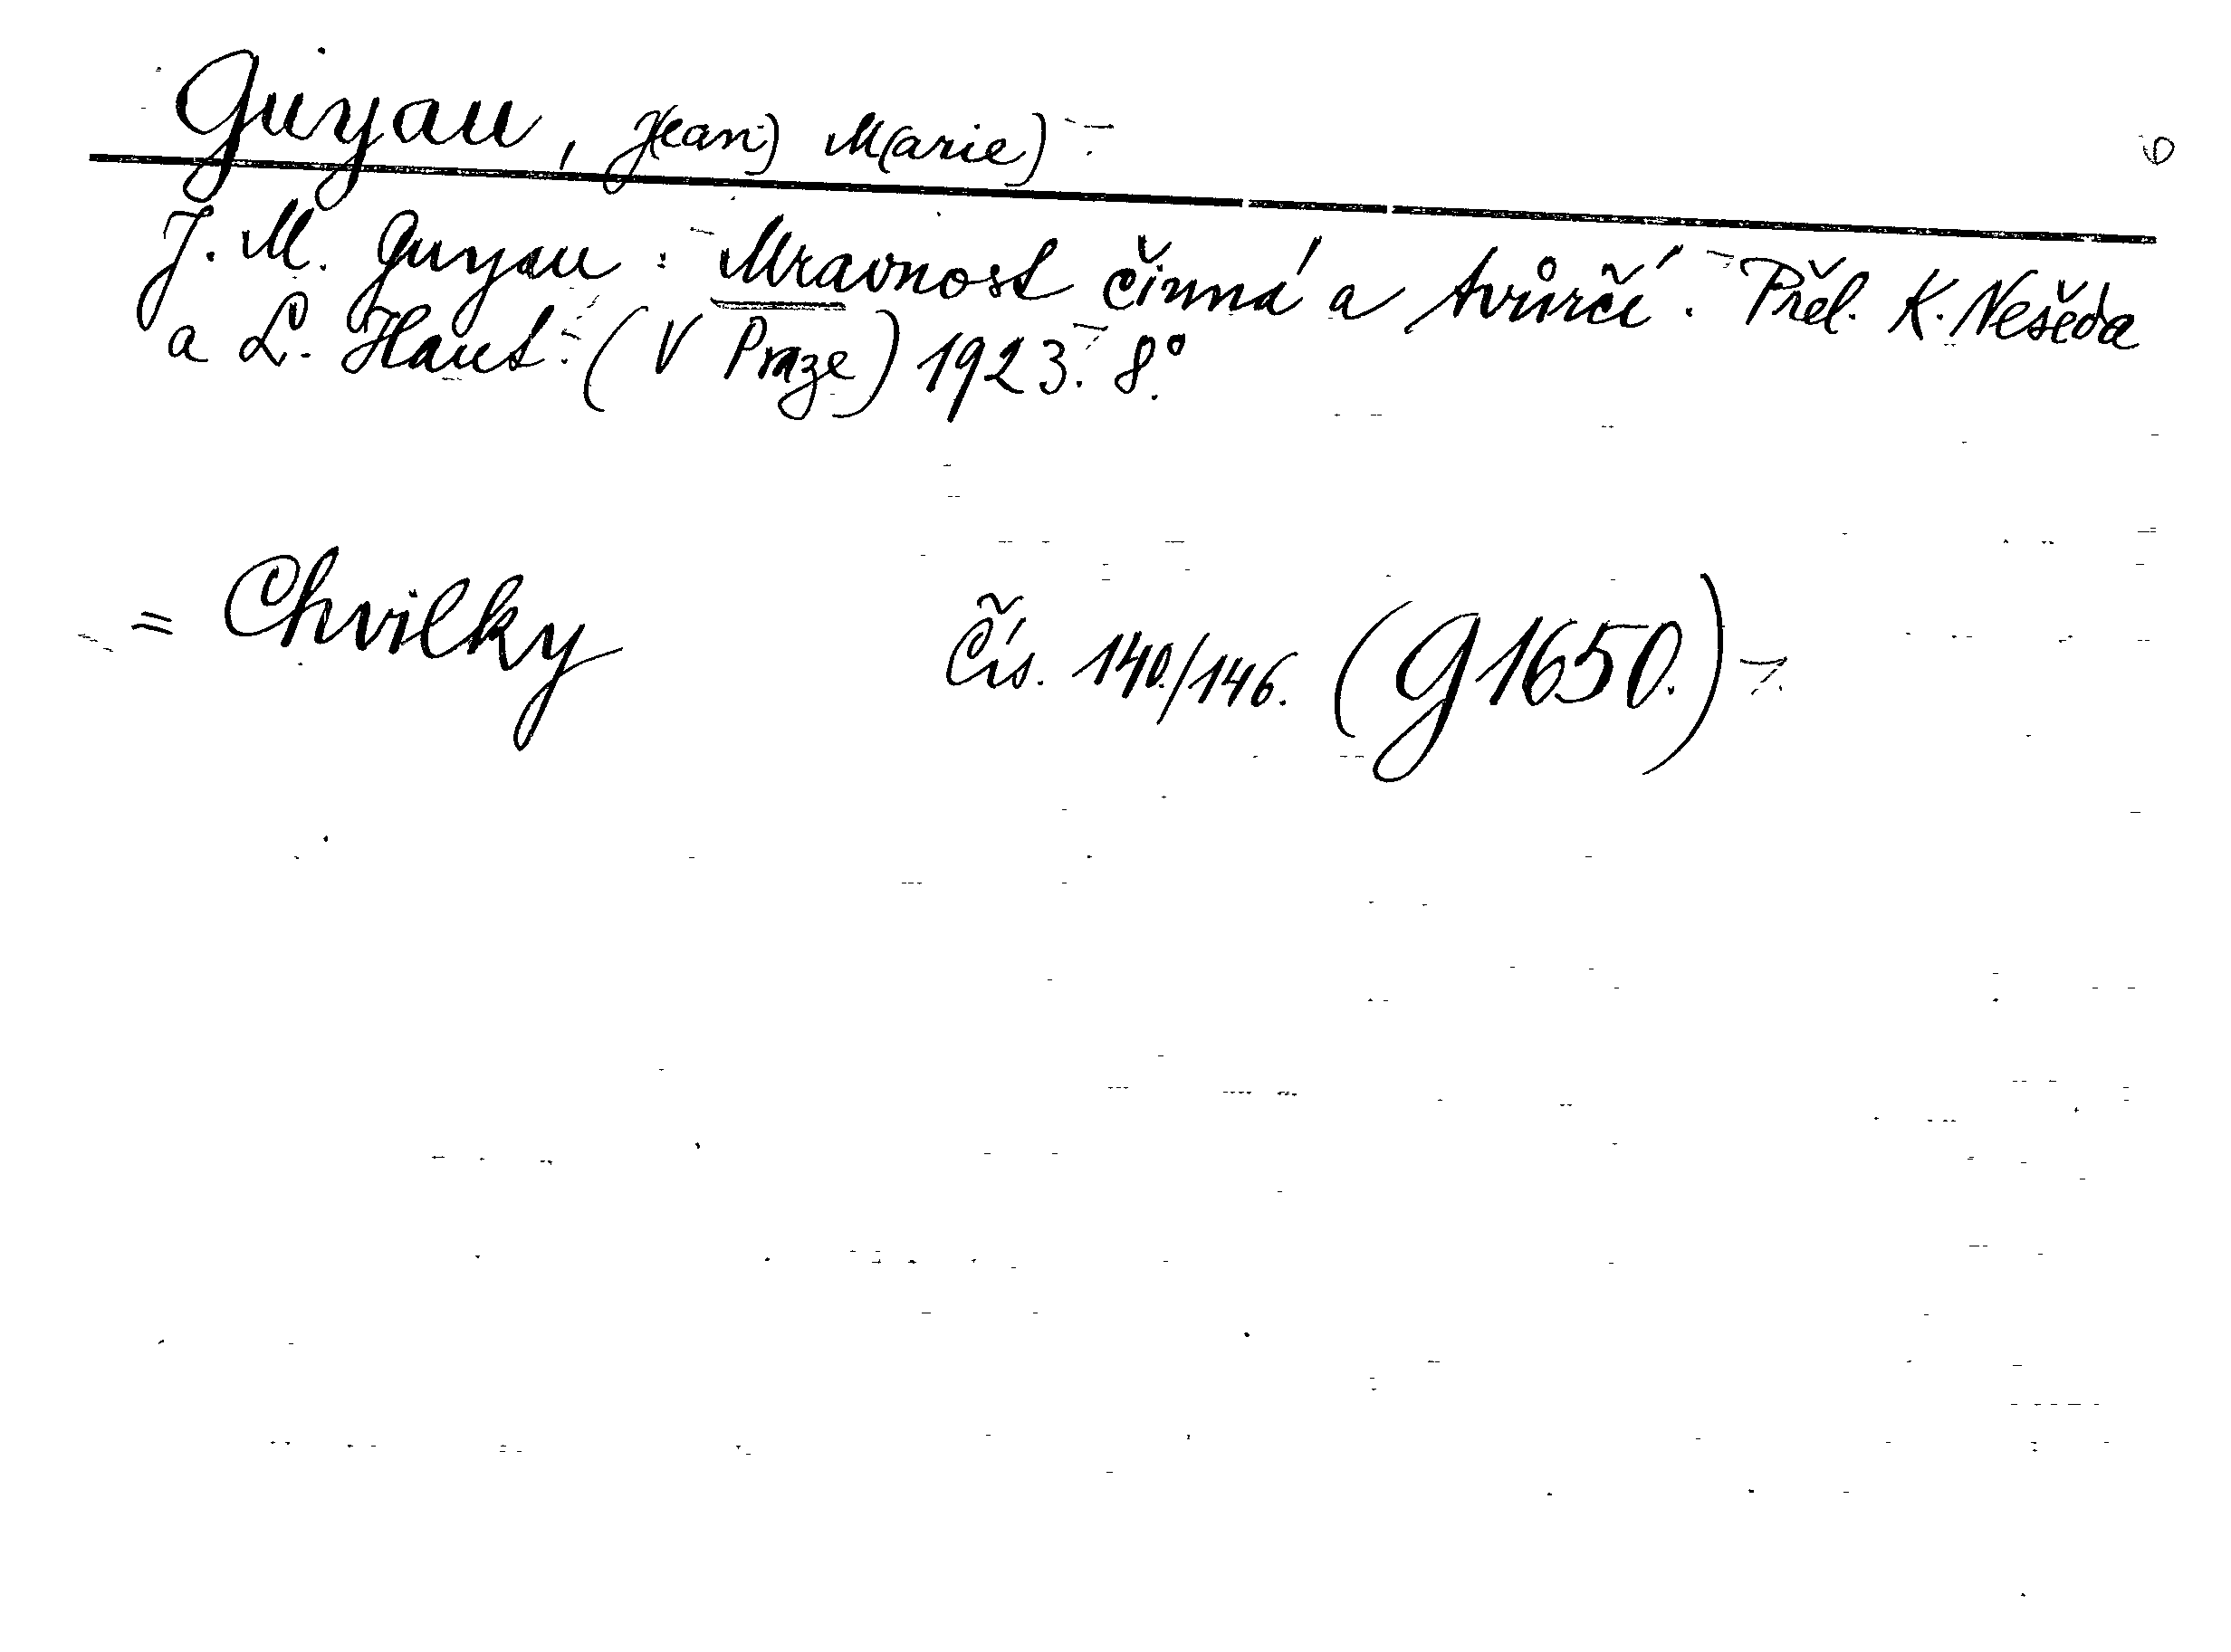 Guyau, J(ean) M(arie)
J. M. Guyau: Mravnost činná a tvůrčí. Přel. K. Nešeda
a L. Haut. (V Praze) 1923. 8°.
= Chvilky Čís. 140./146. (G1650.)